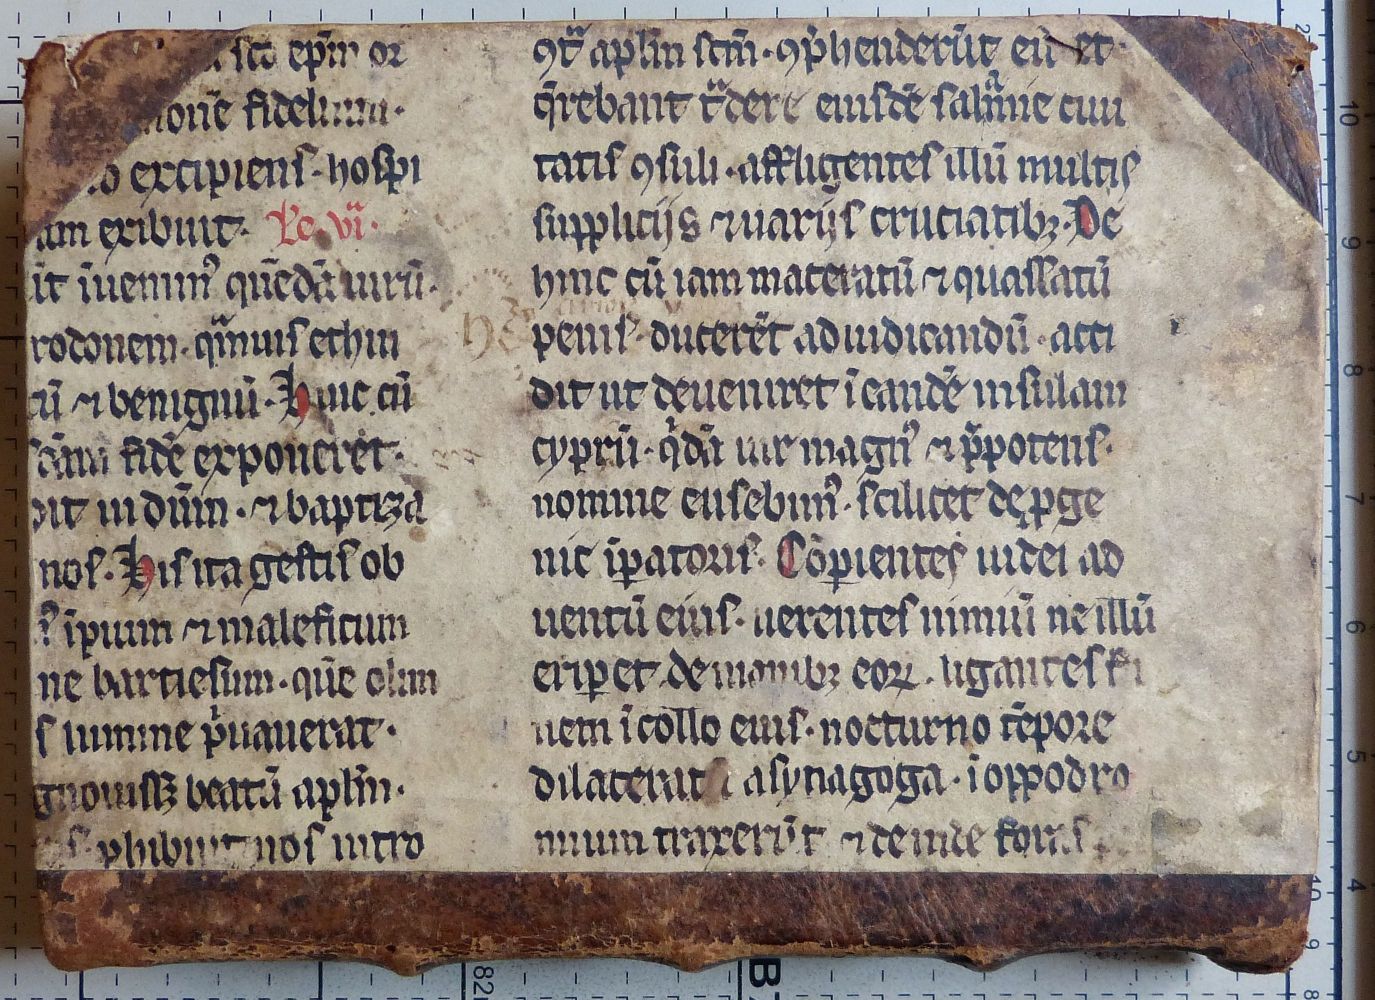 sc̄o ep̄m or
mone fideliu̅m·
excipiens· hospi
am exibuit· Lc̄· vi·
it īuenim᷒ quēdā uirū·
rodonem· qᷓmuis ethni
cū ⁊ benignū· Hinc cū
fidē exponeret·
dit in dūm· ⁊ baptiza
nos· His ita gestis ob
īpuum ⁊ maleficum
ne bartiesum· quē olim
s lumine pͥuauerat·
gnouissꝫ beatū aplm̄·
ꝓhibuit nos intro
ꝯtᷓ aplm̄ sc̄m· ꝯp̄henderūt eū et
q̄rebant tᷓdere eiusdē salᷓmine ciui
tatis ꝯsuli· affligentes illū multis
suppliciis ⁊ uariis cruciatibꝫ· De
hinc cū iam maceratū ⁊ quassatū
penis· ducerēt ad iudicandū· acci
dit ut deueniret ī eandē insulam
cyprū· qͥdā uir magn᷒ ⁊ p̄potens·
nomine eusebium᷒· scilicet de ꝓge
nie īꝑatoris· Cōꝑientes iudei ad
uentū eius· uerentes nimiū ne illū
eriꝑet de manibꝫ eoꝝ· ligantes fu
nem ī collo eius· nocturno tēpore
dilacerat a synagoga· ī oppodro
mium traxerūt ⁊ deinde foras